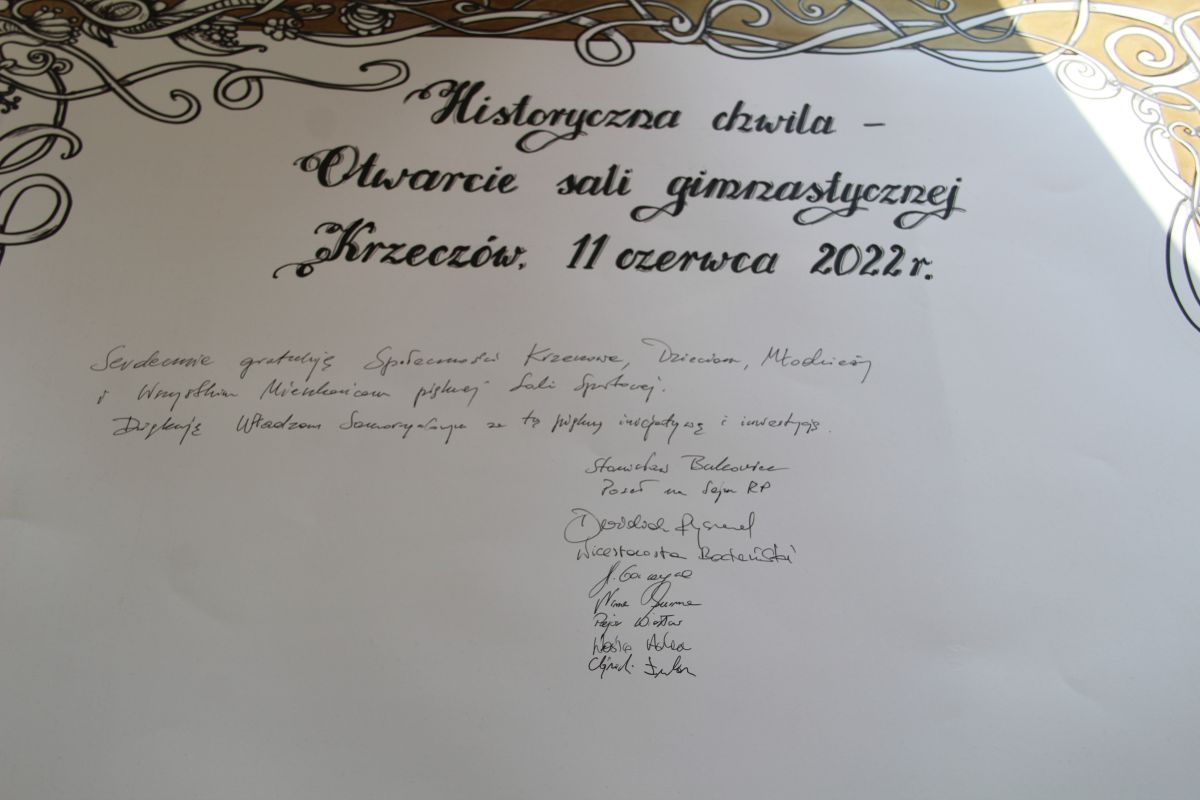 Historyczna chwila –
Otwarcie sali gimnastycznej
Krzeczów, 11 czerwca 2022 r.
Serdecznie gratuluję Społeczności Krzeczowa, Dzieciom, Młodzieży
i Wszystkim Mieszkańcom pięknej Sali Sportowej.
Dziękuję Władzom Samorządowym za tę piękną inicjatywę i inwestycję.
Stanisław Bukowiec
Poseł na Sejm RP
Wicestarosta Bocheński